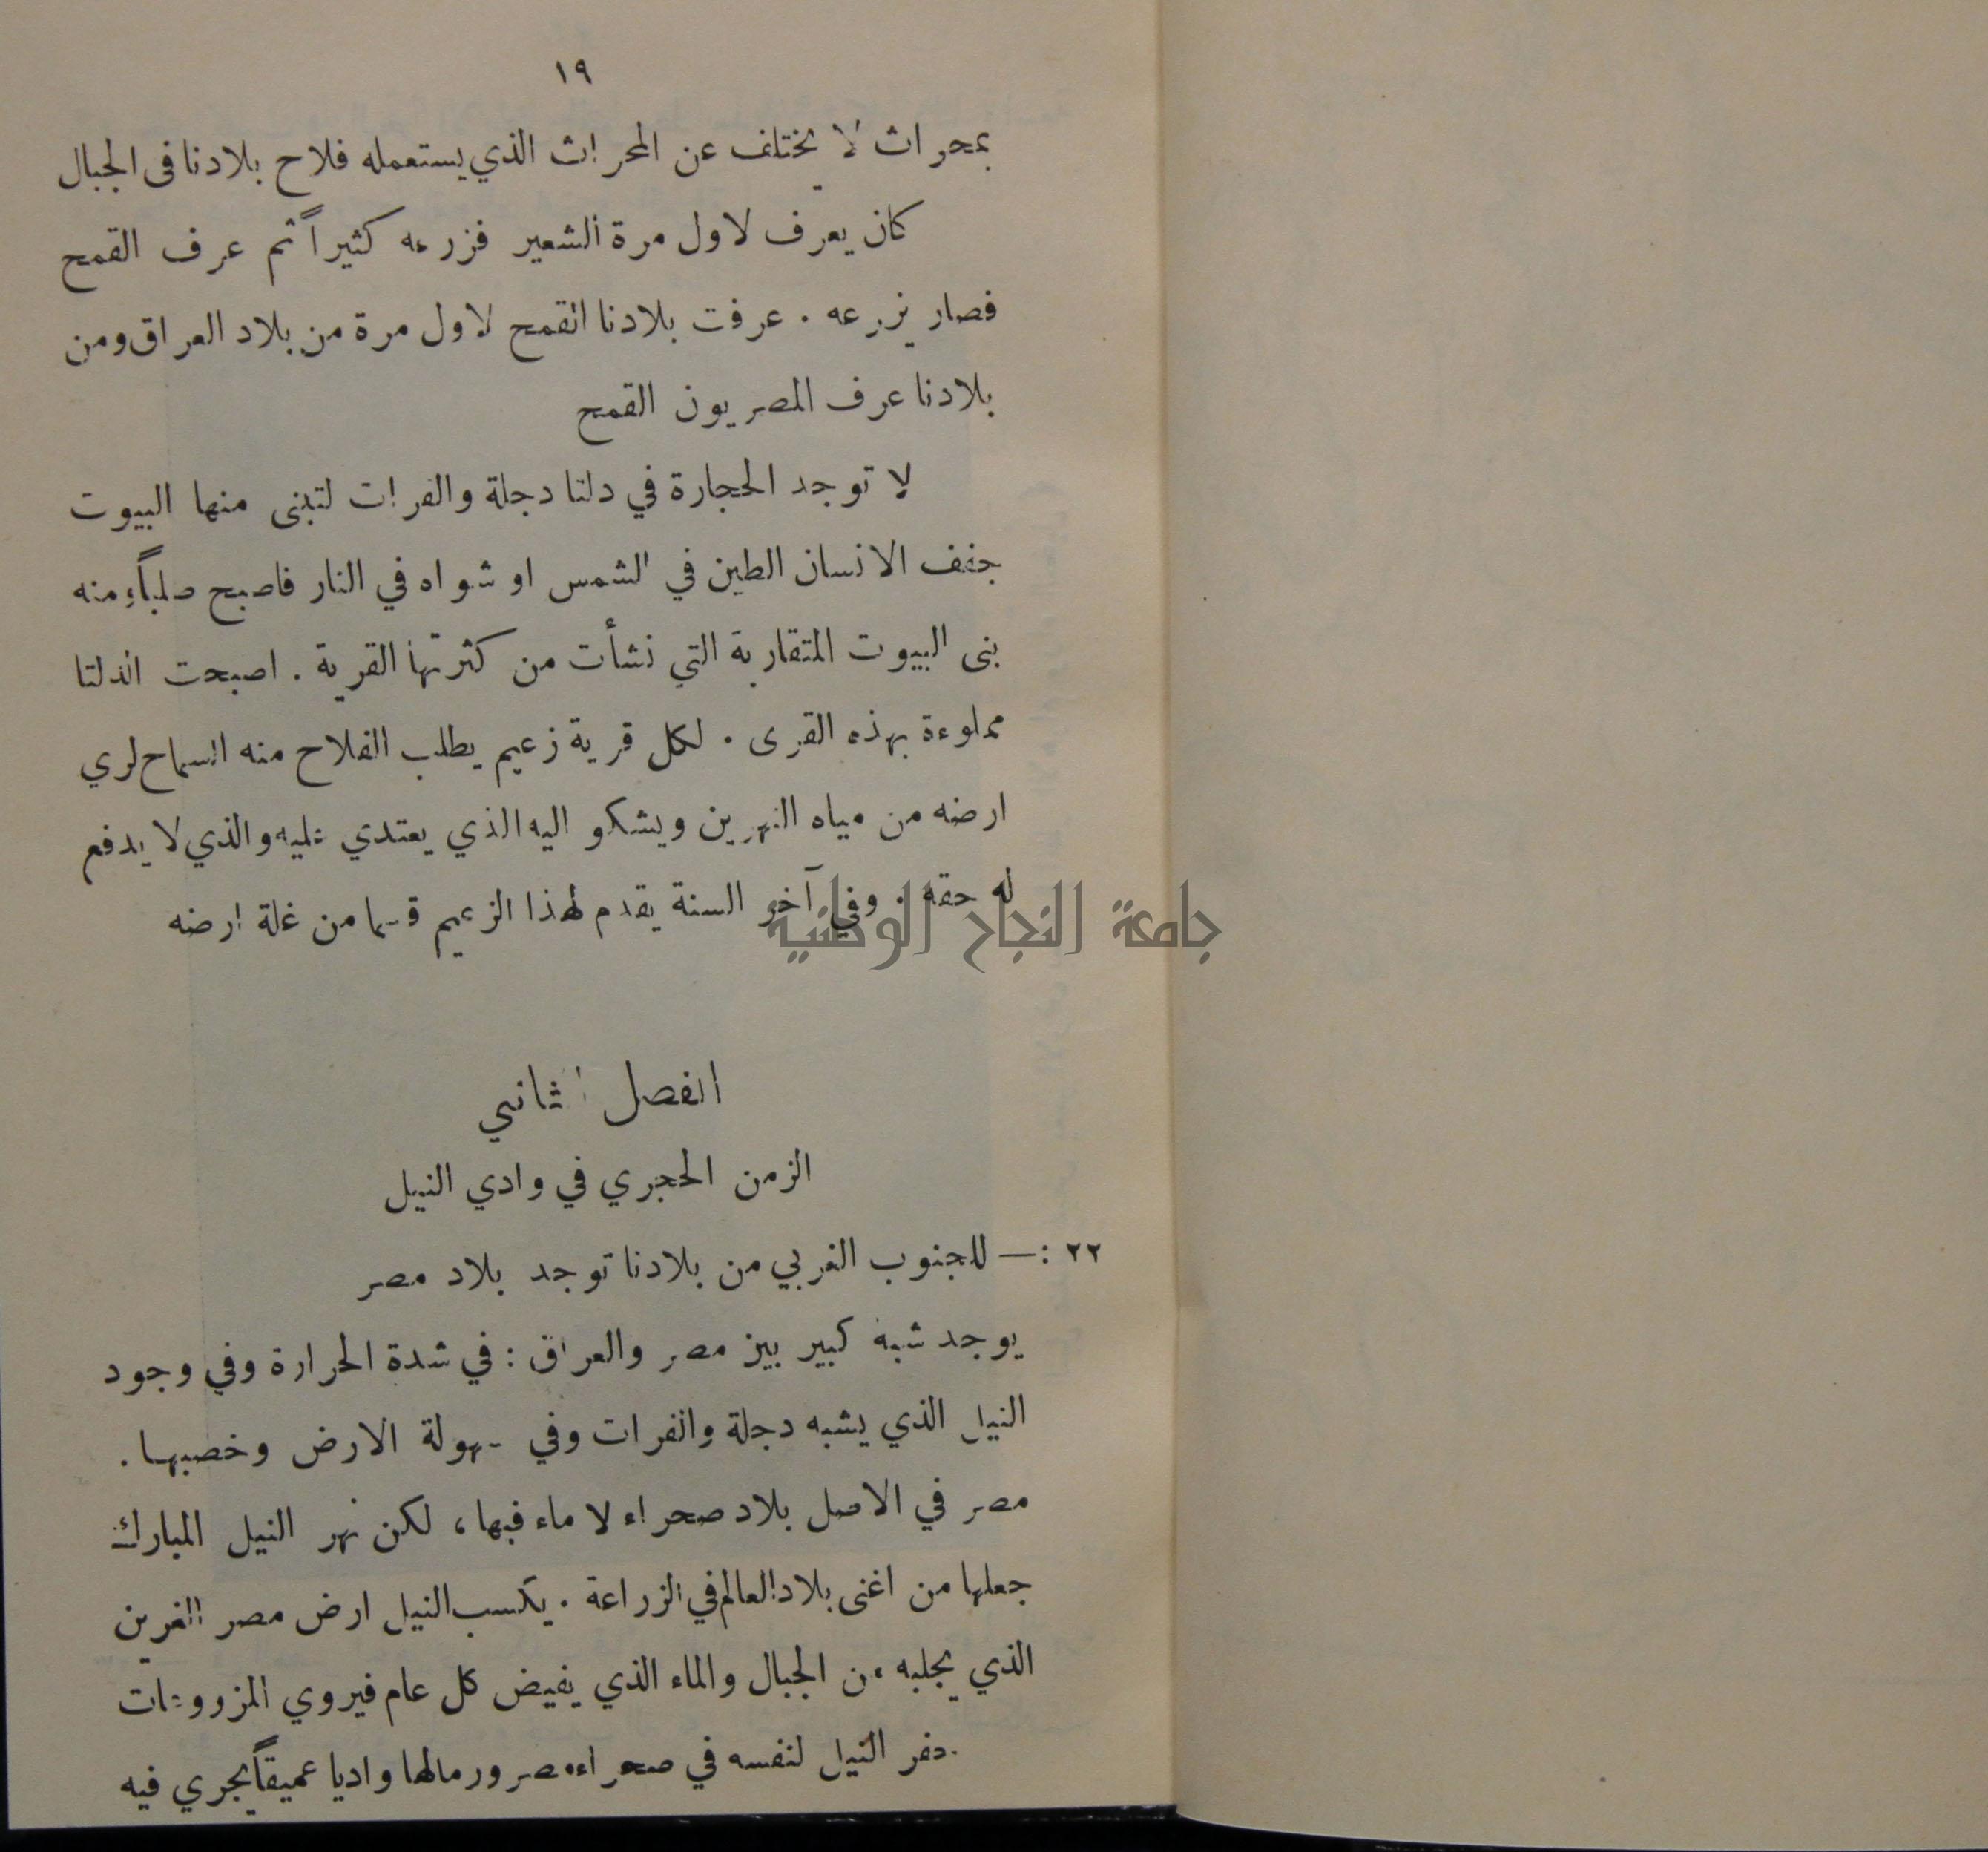 ١٩
بمحراث لا يختلف عن المحراث الذي يستعمله فلاح بلادنا فى الجبال
كان يعرف لاول مرة الشعير فزرعه كثيراً ثم عرف القمح
فصار يزرعه . عرفت بلادنا القمح لاول مرة من بلاد العراق ومن
بلادنا عرف المصريون القمح
لا توجد الحجارة في دلتا دجلة والفرات لتبنى منها البيوت
جفف الانسان الطين في الشمس او شواه في النار فاصبح صلباً ومنه
بنى البيوت المتقاربة التي نشأت من كثرتها القرية . اصبحت الدلتا
مملوءة بهذه القرى . لكل قرية زعيم يطلب الفلاح منه السماح لري
ارضه من مياه النهرين ويشكو اليه الذي يعتدي عليه والذي لا يدفع
له حقه . وفي آخر السنة يقدم لهذا الزعيم قسما من غلة ارضه
جامعة النجاح الوطنية
الفصل الثاني
الزمن الحجري في وادي النيل
٢٢ :— للجنوب الغربي من بلادنا توجد بلاد مصر
يوجد شبه كبير بين مصر والعراق : في شدة الحرارة وفي وجود
النيل الذي يشبه دجلة والفرات وفي سهولة الارض وخصبها .
مصر في الاصل بلاد صحراء لا ماء فيها ، لكن نهر النيل المبارك
جعلها من اغنى بلاد العالم في الزراعة . يكسب النيل ارض مصر الغرين
الذي يجلبه من الجبال والماء الذي يفيض كل عام فيروي المزروعات
حفر النيل لنفسه في صحراء مصر ورمالها واديا عميقاً يجري فيه